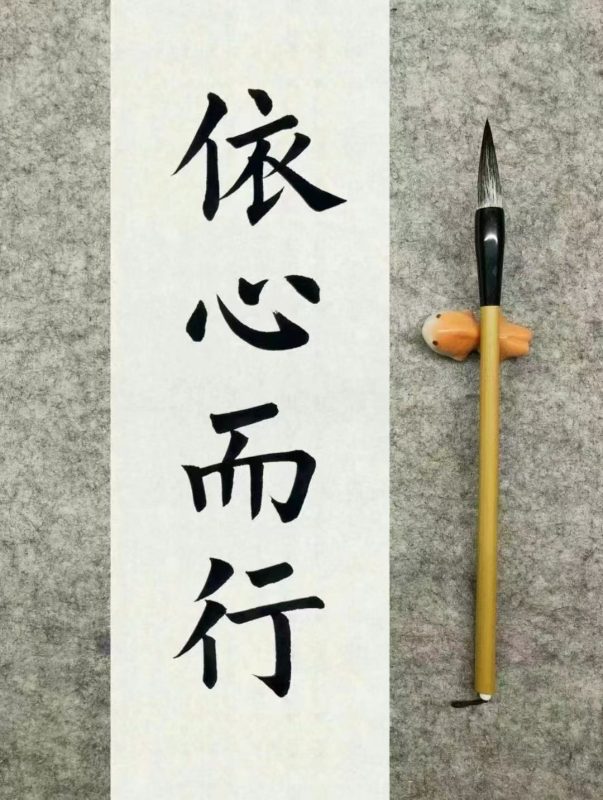 依心而行